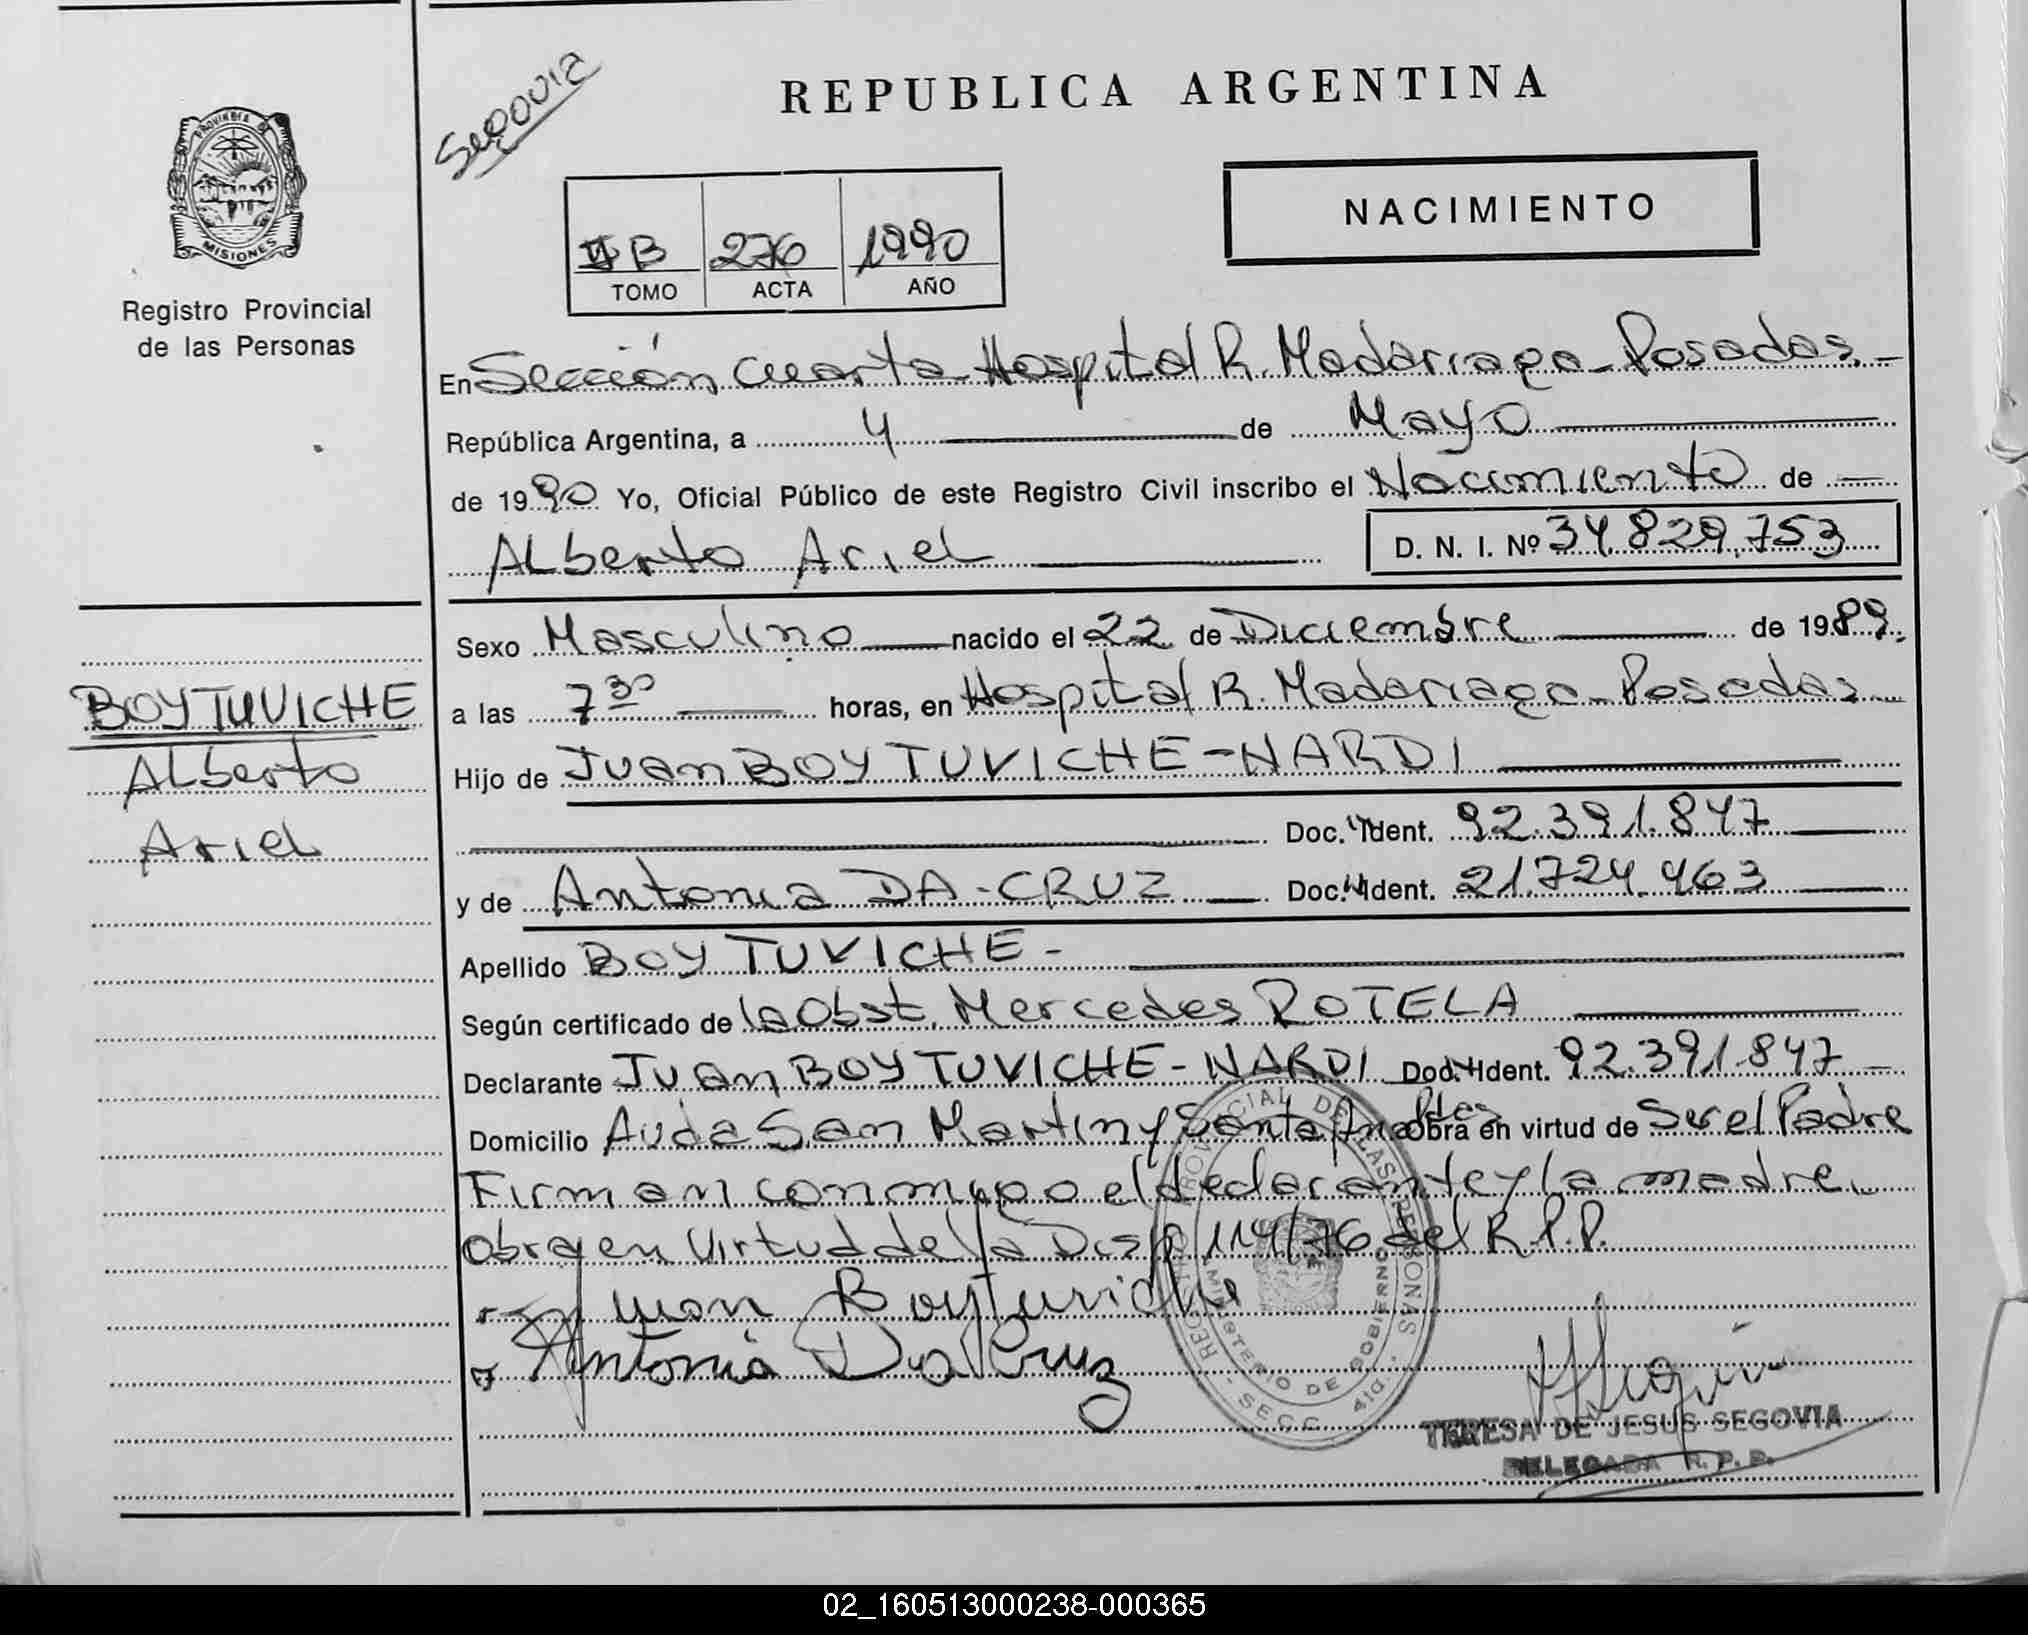 Segovia
REPUBLICA ARGENTINA
PROVINCIA DE
MISIONES
Registro Provincial
de las Personas
NACIMIENTO
B 276 1990
TOMO ACTA AÑO
En Sección Cuarta Hospital R. Madariaga - Posadas. -
República Argentina, a 4 de Mayo
de 1990 Yo, Oficial Público de este Registro Civil inscribo el Nacimiento de
ALberto Ariel D. N. I. Nº 34.829.753
Sexo Masculino nacido el 22 de Diciembre de 1989.
a las 7 30 horas, en Hospital R. Madariaga - Posadas
Hijo de Juan BOYTUVICHE - NARDI
Doc. Ident. 92.391.847
y de Antonia DA - CRUZ Doc. Ident. 21.724.463
Apellido BOYTUVICHE -
Según certificado de la Obst. Mercedes ROTELA
Declarante Juan BOYTUVICHE - NARDI Doc. Ident. 92.391.847
Domicilio Avda San Martin y Santa Ana Pdas Obra en virtud de Ser el Padre
Firman conmigo el declarante y la madre.
Obra en Virtud de la Disp 114/76 del R.P.P.
Juan Boytuviche
Antonia Da Cruz
REGISTRO PROVINCIAL DE LAS PERSONAS
MINISTERIO DE GOBIERNO
SECC. 4ta.
TERESA DE JESUS SEGOVIA
DELEGADA R. P. P.
BOYTUVICHE
ALberto
Ariel
02_160513000238-000365